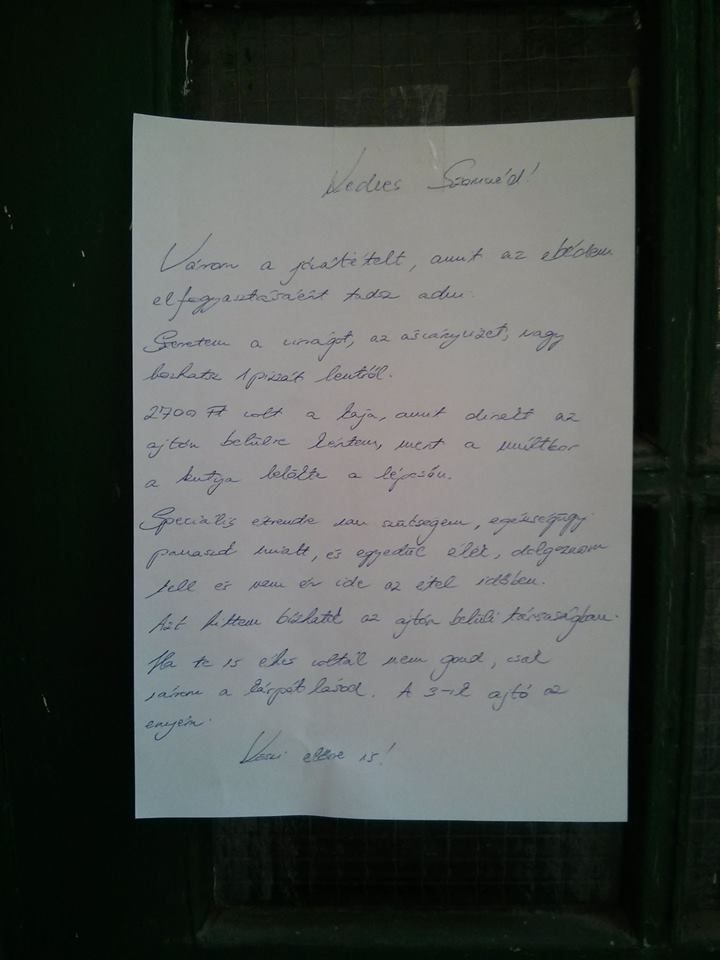 Kedves Szomszéd!
Várom a jóvátételt, amit az ebédem
elfogyasztásáért tudsz adni.
Szeretem a virágot, az ásványvizet, vagy
hozhatsz 1 pizzát lentről.
2700 Ft volt a kaja, amit direkt az
ajtón belülre kértem, mert a múltkor
a kutya belölte a lépcsőn.
Speciális étrendre van szükségem, egészségügyi
panaszok miatt, és egyedül élek, dolgoznom
kell és nem ér ide az étel időben.
Azt hittem bízhatok az ajtón belüli társaságban.
Ha te is éhes voltál nem gond, csak
várom a kárpótlásod. A 3-ik ajtó az
enyém.
Köszi előre is!